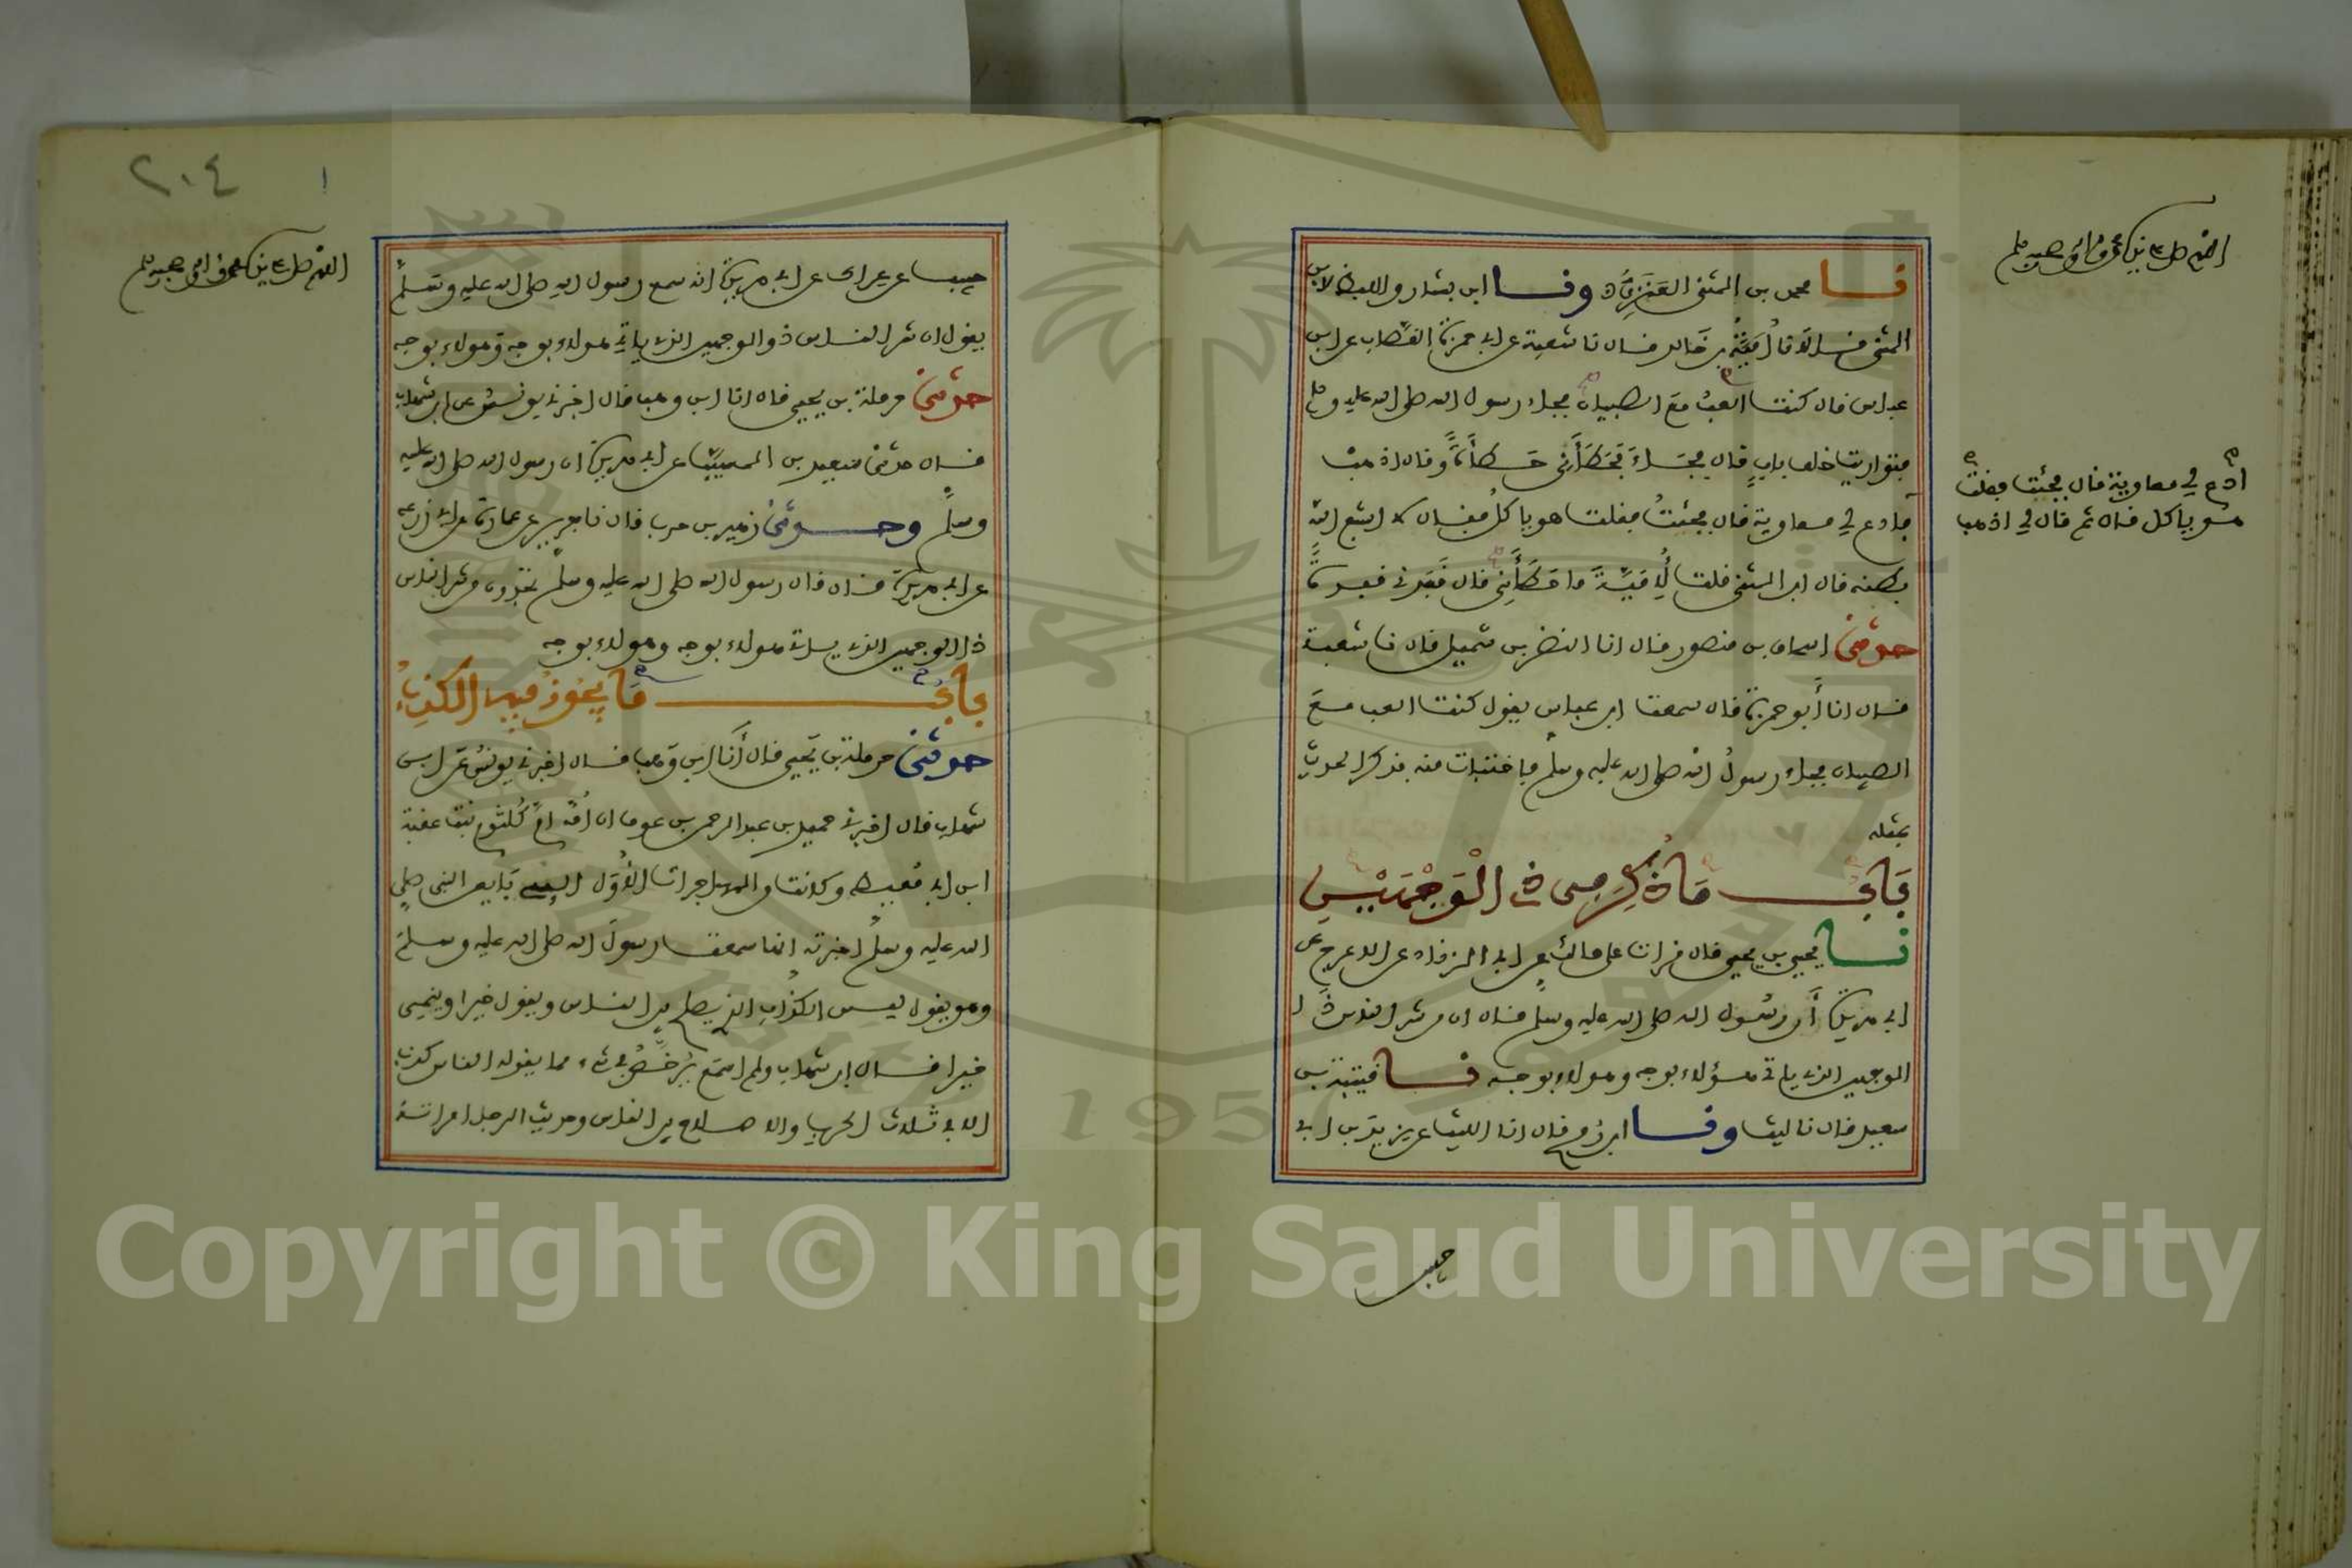 اللهم صل على نبيك محمد وآله وصحبه وسلم
نا محمد بن المثنى العنزي ونا ابن بشار واللفظ لابن
المثنى قالا نا أمية بن خالد قال نا شعبة عن ابي حمزة القصاب عن ابن
عباس قال كنت العب مع الصبيان فجاء رسول الله صلى الله عليه وسلم
فتواريت خلف باب قال فجاء فحطأني حطأة وقال اذهب
فادع لي معاوية قال فجئت فقلت هو ياكل فقال لا اشبع الله
ادع لي معاوية قال فجئت فقلت
هو ياكل قال ثم قال لي اذهب
بطنه قال ابن المثنى قلت لأمية ما حطأني قال قفدني قفدة
حدثني اسحاق بن منصور قال انا النضر بن شميل قال نا شعبة
قال انا أبو حمزة قال سمعت ابن عباس يقول كنت العب مع
الصبيان فجاء رسول الله صلى الله عليه وسلم فاختبات منه فذكر الحديث
بمثله
باب ما ذكر في ذي الوجهين
نا يحيى بن يحيى قال قرات على مالك عن ابي الزناد عن الاعرج عن
ابي هريرة أن رسول الله صلى الله عليه وسلم قال ان من شر الناس ذا
الوجهين الذي ياتي هؤلاء بوجه وهولاء بوجه نا قتيبة بن
سعيد قال نا ليث ونا ابن رمح قال انا الليث عن يزيد بن ابي
حبيب
٢٠٤
اللهم صل على نبيك محمد وآله وصحبه وسلم
حبيب عن عراك عن ابي هريرة انه سمع رسول الله صلى الله عليه وسلم
يقول ان شر الناس ذو الوجهين الذي ياتي هولاء بوجه وهولاء بوجه
حدثني حرملة بن يحيى قال انا ابن وهب قال اخبرني يونس عن ابن شهاب
قال حدثني سعيد بن المسيب عن ابي هريرة ان رسول الله صلى الله عليه
وسلم وحدثني زهير بن حرب قال نا جرير عن عمارة عن ابي زرعة
عن ابي هريرة قال قال رسول الله صلى الله عليه وسلم تجدون من شر الناس
ذا الوجهين الذي ياتي هولاء بوجه وهولاء بوجه
باب ما يجوز فيه الكذب
حدثني حرملة بن يحيى قال أنا ابن وهب قال اخبرني يونس عن ابن
شهاب قال اخبرني حميد بن عبد الرحمن بن عوف ان أمه ام كلثوم بنت عقبة
ابن ابي معيط وكانت من المهاجرات الأول اللاتي بايعن النبي صلى
الله عليه وسلم اخبرته انها سمعت رسول الله صلى الله عليه وسلم
وهو يقول ليس الكذاب الذي يصلح بين الناس ويقول خيرا وينمي
خيرا قال ابن شهاب ولم اسمع يرخص في شيء مما يقول الناس كذب
الا في ثلاث الحرب والاصلاح بين الناس وحديث الرجل امراته
Copyright © King Saud University
1957